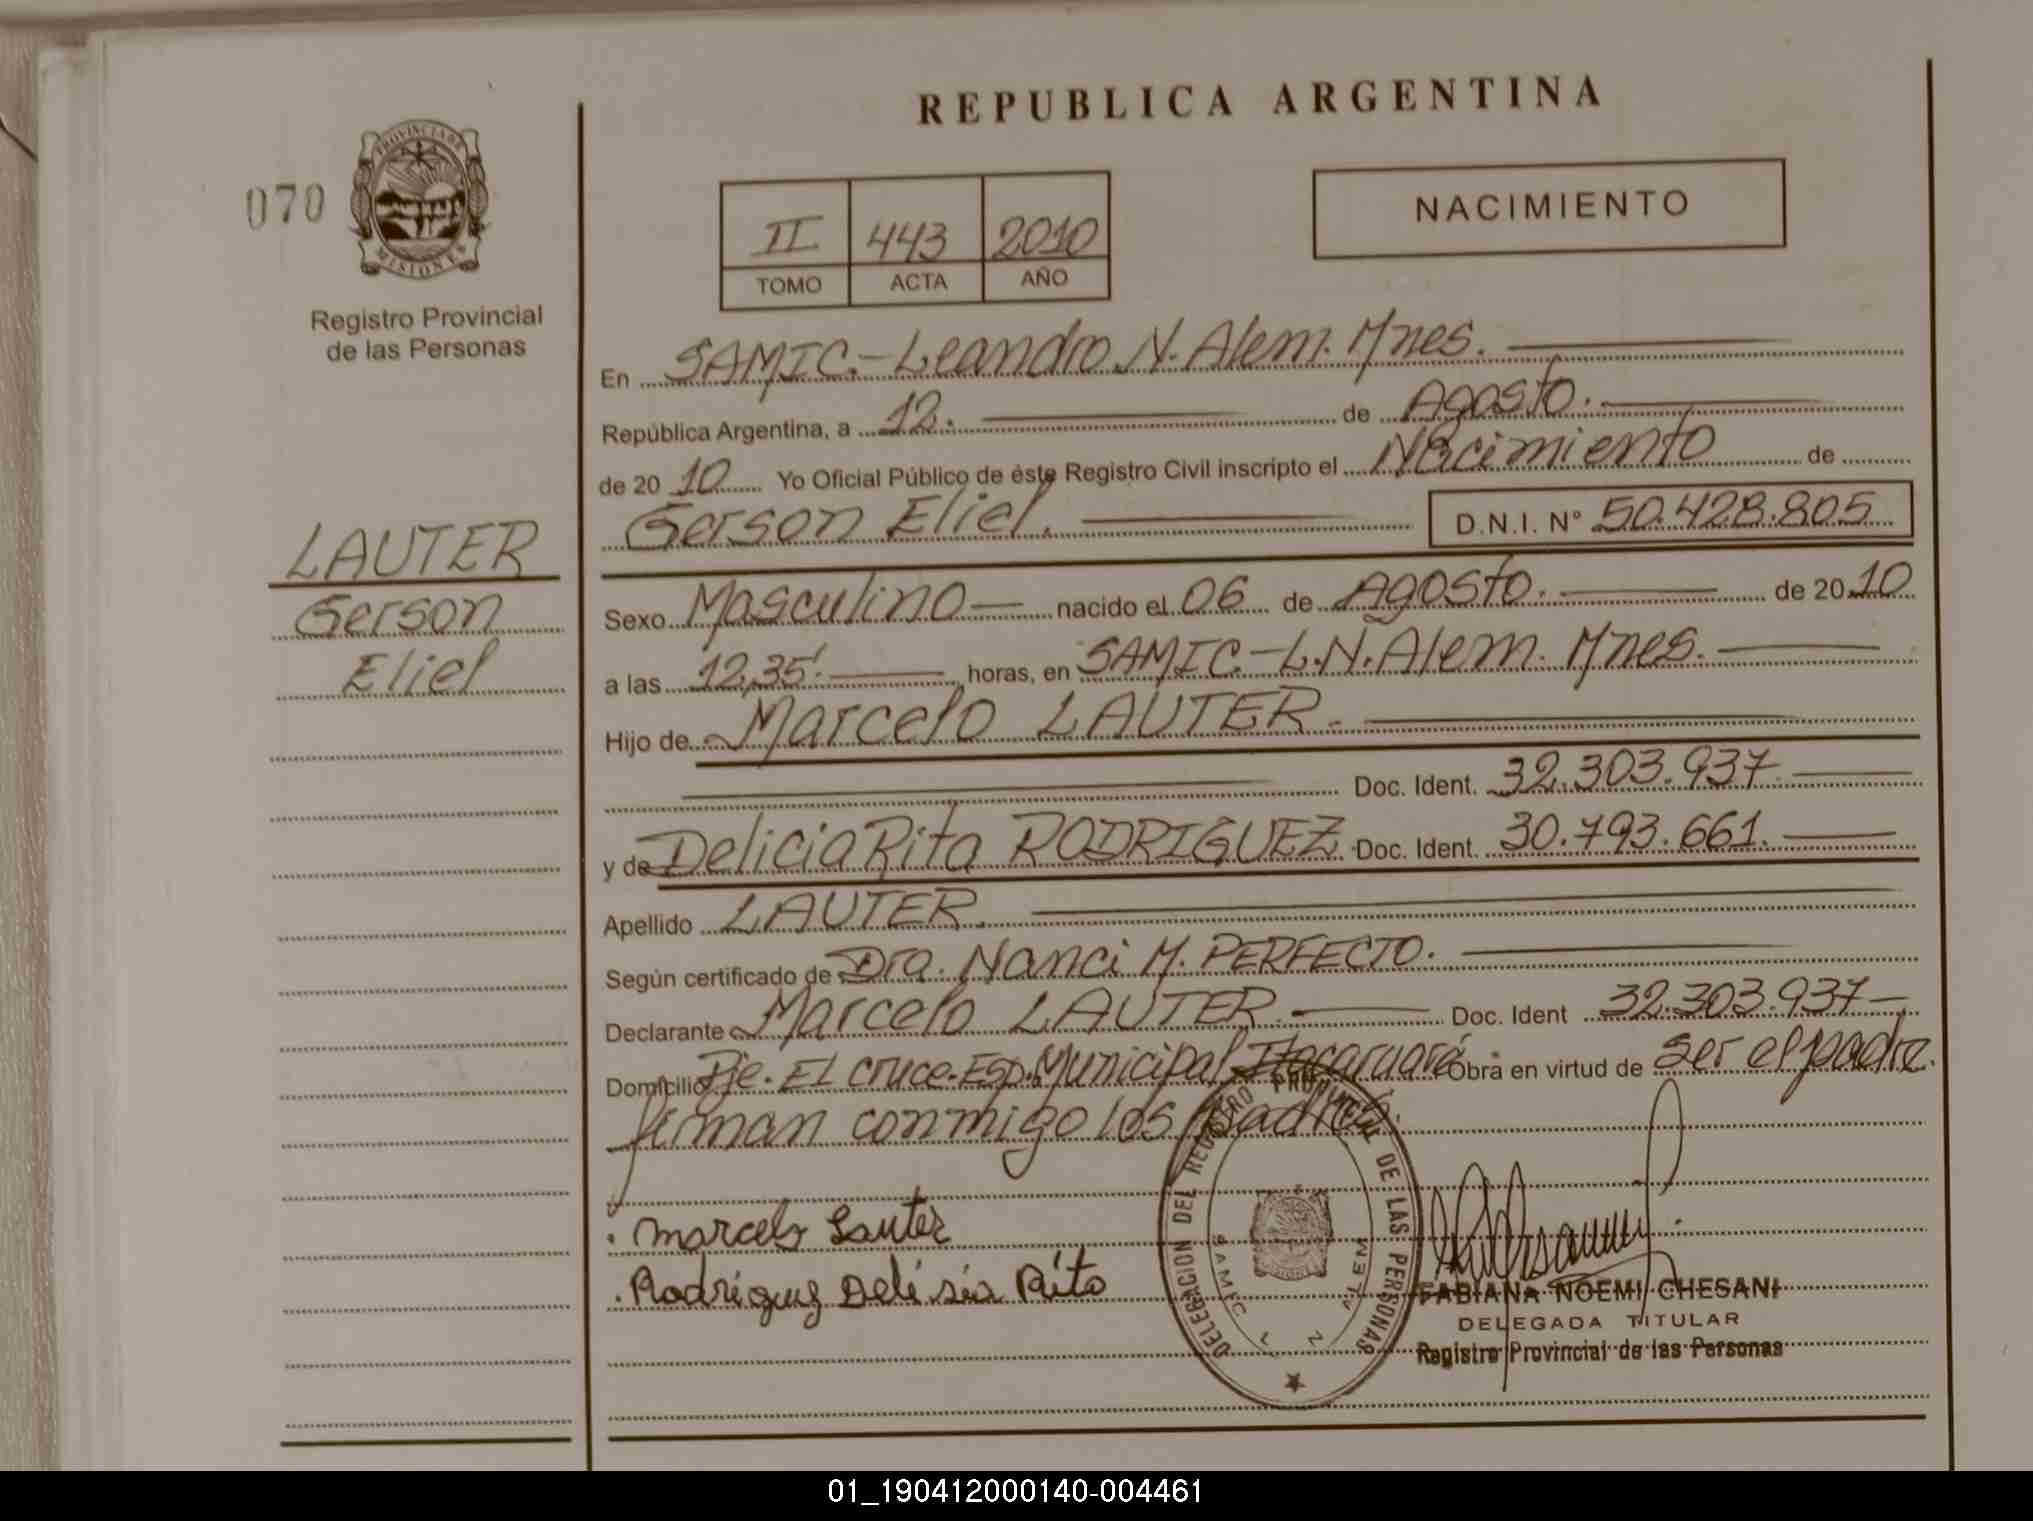 REPUBLICA ARGENTINA
070
PROVINCIA DE
MISIONES
Registro Provincial
de las Personas
II 443 2010
TOMO ACTA AÑO
NACIMIENTO
En SAMIC.-Leandro N. Alem. Mnes.
República Argentina, a 12. de Agosto.
de 20 10 Yo Oficial Público de éste Registro Civil inscripto el Nacimiento de
Gerson Eliel. D.N.I. N° 50.428.805
LAUTER
Gerson
Eliel
Sexo Masculino nacido el 06 de Agosto. de 20 10
a las 12,35'. horas, en SAMIC.-L.N.Alem. Mnes.
Hijo de Marcelo LAUTER.
Doc. Ident. 32.303.937
y de Delicia Rita RODRIGUEZ Doc. Ident. 30.793.661.
Apellido LAUTER.
Según certificado de Dra. Nanci M. PERFECTO.
Declarante Marcelo LAUTER. Doc. Ident 32.303.937
Domicilio Pje. El cruce. Esp. Municipal Itacaruaré Obra en virtud de ser el padre.
firman conmigo los padres.
Marcelo Lauter
Rodriguez Delisia Rita
DELEGACION DEL REGISTRO PROVINCIAL DE LAS PERSONAS
SAMIC L N ALEM
FABIANA NOEMI CHESANI
DELEGADA TITULAR
Registro Provincial de las Personas
01_190412000140-004461